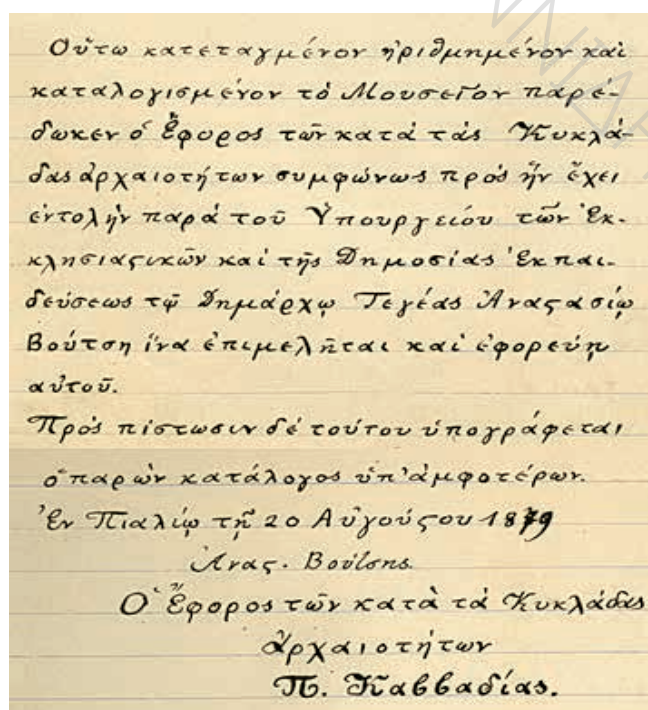 Οὕτω κατεταγμένον ηριθμημένον καὶ
καταλογισμένον τὸ Μουσεῖον παρέ-
δωκεν ὁ Ἔφορος τῶν κατὰ τὰς Κυκλά-
δας ἀρχαιοτήτων συμφώνως πρὸς ἣν ἔχει
ἐντολὴν παρὰ τοῦ Ὑπουργείου τῶν Ἐκ-
κλησιαςικῶν καὶ τῆς Δημοσίας Ἐκπαι-
δεύσεως τῷ Δημάρχῳ Τεγέας Ἀναςασίῳ
Βούτση ἵνα ἐπιμελῆται καὶ ἐφορεύῃ
αὐτοῦ.
Πρὸς πίστωσιν δὲ τούτου ὑπογράφεται
ὁ παρὼν κατάλογος ὑπ' ἀμφοτέρων.
Ἐν Πιαλίῳ τῇ 20 Αὐγούςου 1879
Ἀνας. Βούτσης.
Ὁ Ἔφορος τῶν κατὰ τὰ Κυκλάδας
ἀρχαιοτήτων
Π. Καββαδίας.